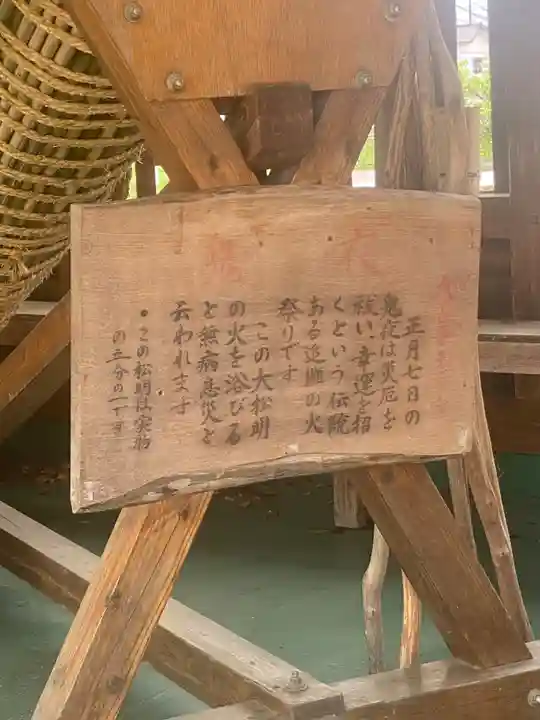 正月七日の
鬼夜は災厄を
祓い、幸運を招
くという伝統
ある追儺の火
祭りです
この大松明
の火を浴びる
と無病息災と
云われます
●この松明は実物
の三分の一です